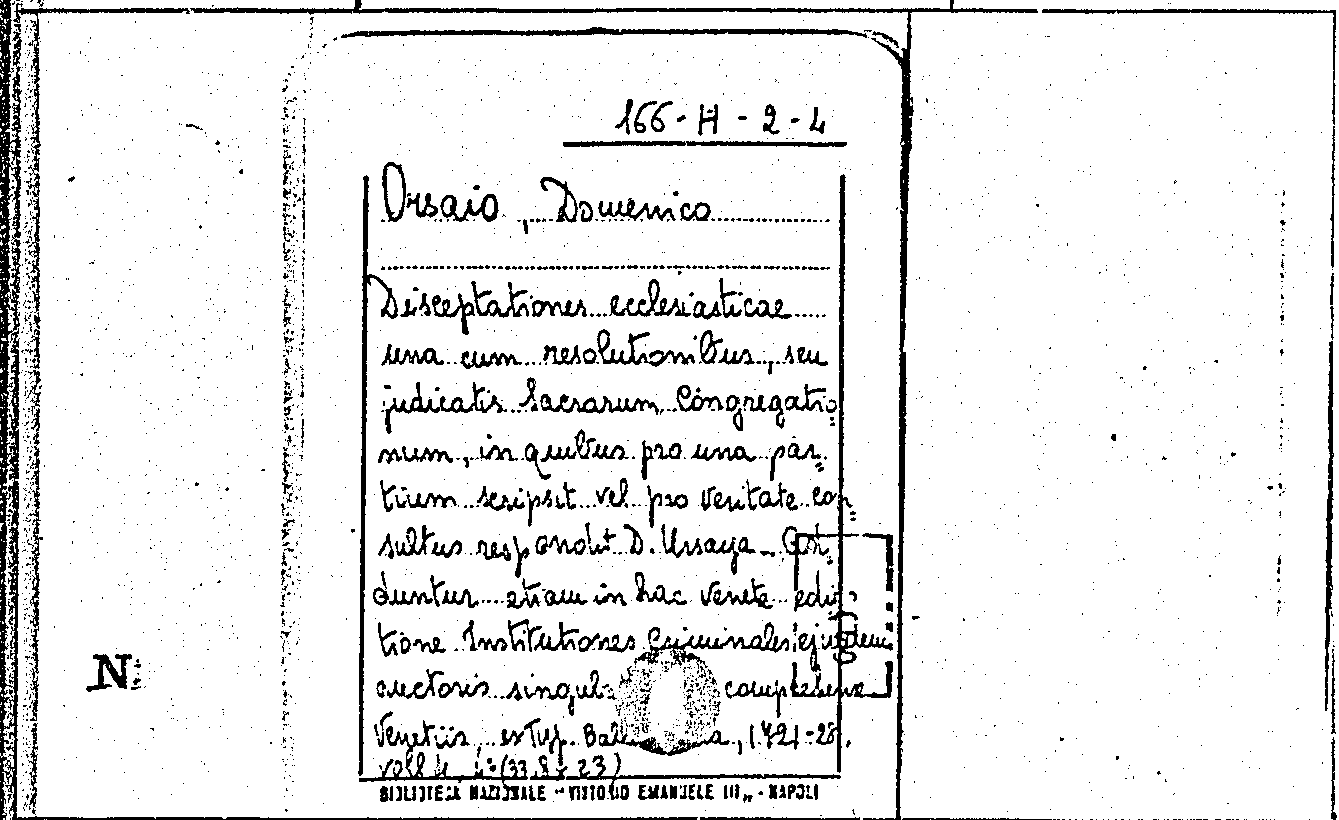 166-H-2-4
Orsaio, Domenico
Disceptationes ecclesiasticae
una cum resolutionibus, seu
judicatis Sacrarum Congregatio=
num, in quibus pro una par=
tium scripsit vel pro veritate con=
sultus respondit D. Ursaya_
duntur etiam in hac Veneta edi=
tione Institutiones Criminales ejusdem
auctoris
Venetiis, ex Typ. 1721-28.
voll 4, 4°
N:
BIBLIOTECA NAZIONALE "VITTORIO EMANUELE III„ - NAPOLI